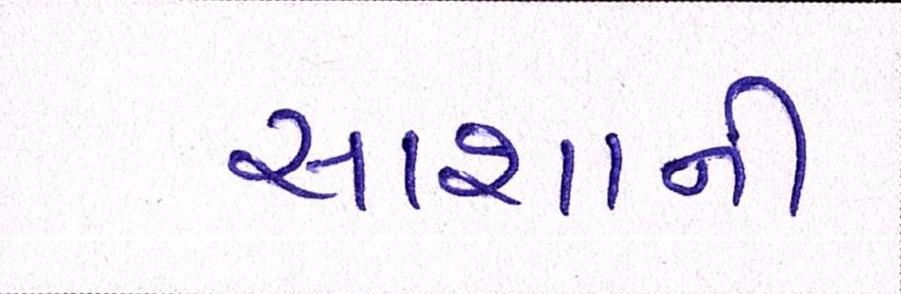 સાશાની